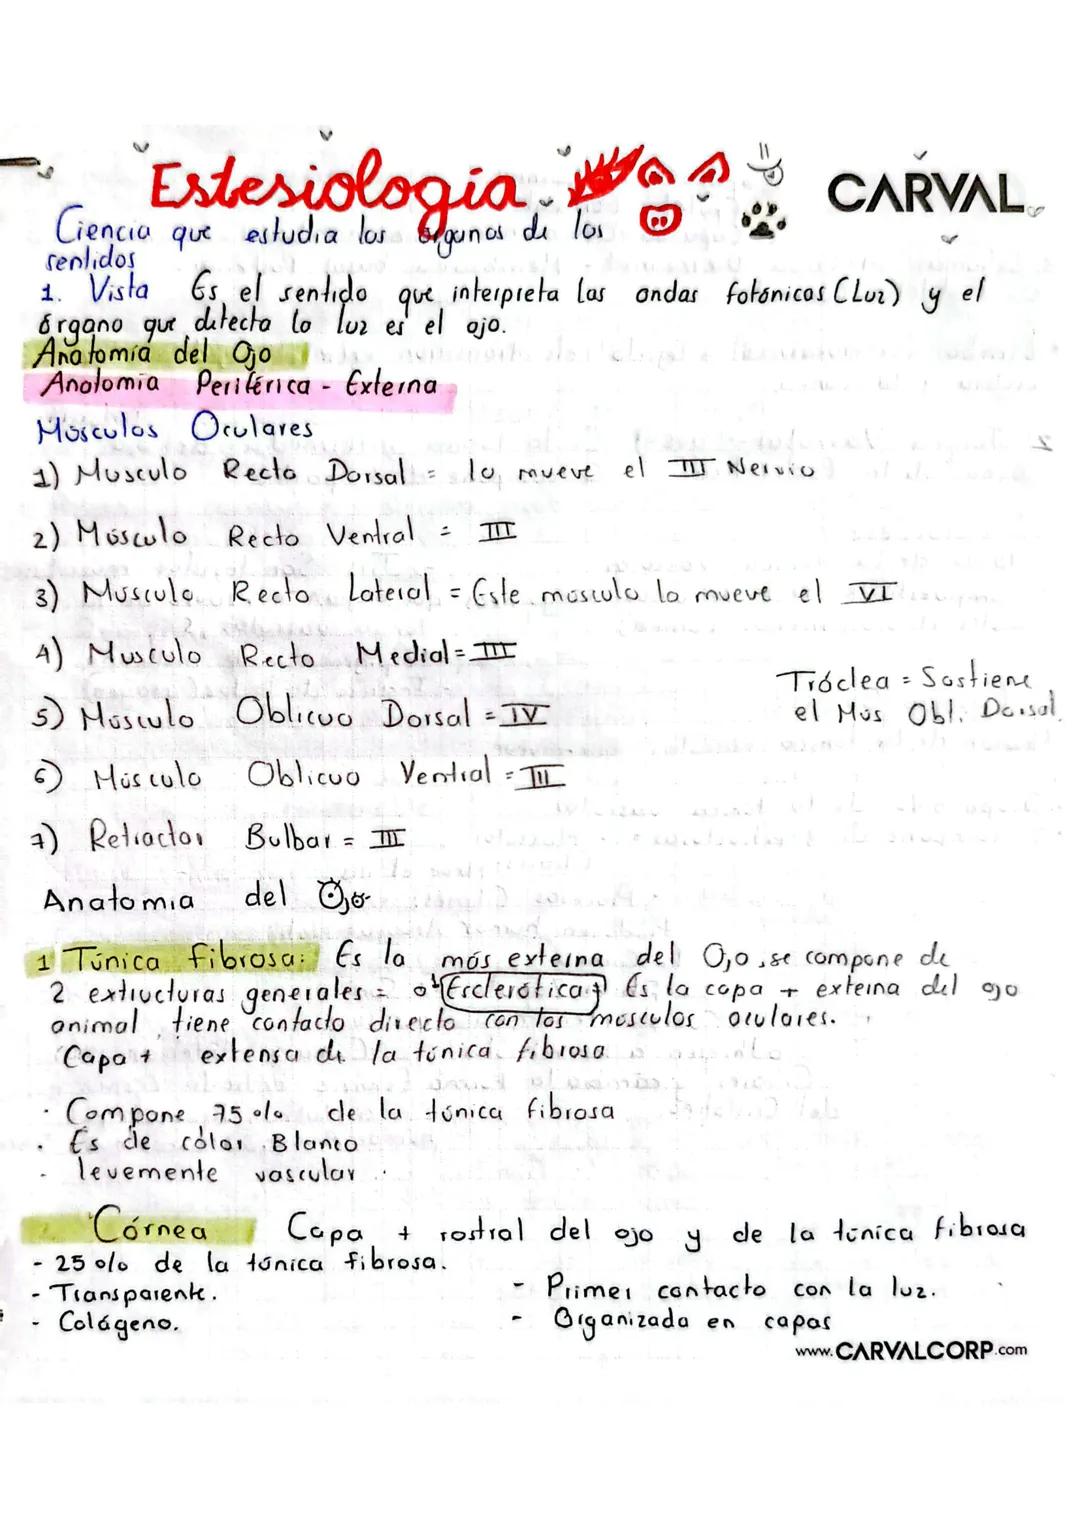 Estesiología
CARVAL
Ciencia que estudia los órganos de los
sentidos
1. Vista Es el sentido que interpreta las ondas fotónicas (Luz) y el
órgano que detecta la luz es el ojo.
Anatomía del Ojo
Anatomía Periférica - Externa
Músculos Oculares
1) Musculo Recto Dorsal = lo mueve el III Nervio
2) Músculo Recto Ventral = III
3) Músculo Recto Lateral = Este músculo lo mueve el VI
4) Musculo Recto Medial = III
Tróclea = Sostiene
el Mús Obl. Dorsal.
5) Músculo Oblicuo Dorsal = IV
6) Músculo Oblicuo Ventral = III
7) Retractor Bulbar = III
Anatomia del Ojo
1 Túnica fibrosa: Es la más externa del Ojo, se compone de
2 extructuras generales = Esclerótica Es la capa + externa del ojo
animal, tiene contacto directo con los músculos oculares.
Capa + extensa de la túnica fibrosa
· Compone 75 % de la túnica fibrosa
· Es de color Blanco
· levemente vascular
Córnea Capa + rostral del ojo y de la túnica fibrosa
- 25 % de la túnica fibrosa.
- Transparente.
- Primer contacto con la luz.
- Colágeno.
- Organizada en capas
www.CARVALCORP.com